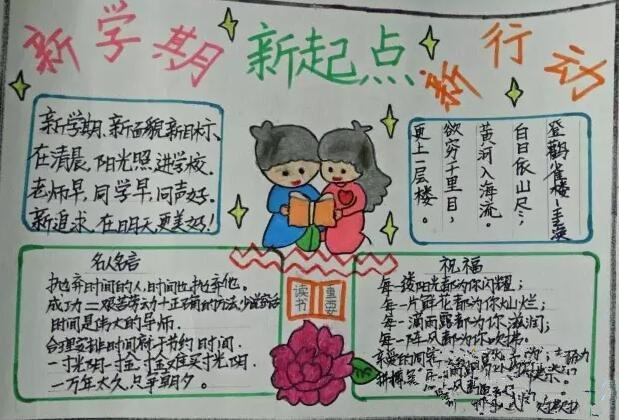 新学期 新起点 新行动
新学期、新面貌、新目标、
在清晨，阳光照进学校.
老师早，同学早，同声好.
新追求，在明天，更美好！
登鹳雀楼-王之涣
白日依山尽，
黄河入海流。
欲穷千里目，
更上一层楼。
名人名言
抛弃时间的人，时间也抛弃他.
成功＝艰苦劳动＋正确的方法＋少说空话
时间是伟大的导师.
合理安排时间等于节约时间.
一寸光阴一寸金，寸金难买寸光阴.
一万年太久，只争朝夕。
读书
重要
祝福
每一缕阳光都为你闪耀；
每一片鲜花都为你灿烂；
每一滴雨露都为你滋润；
每一阵风都为你吹拂。